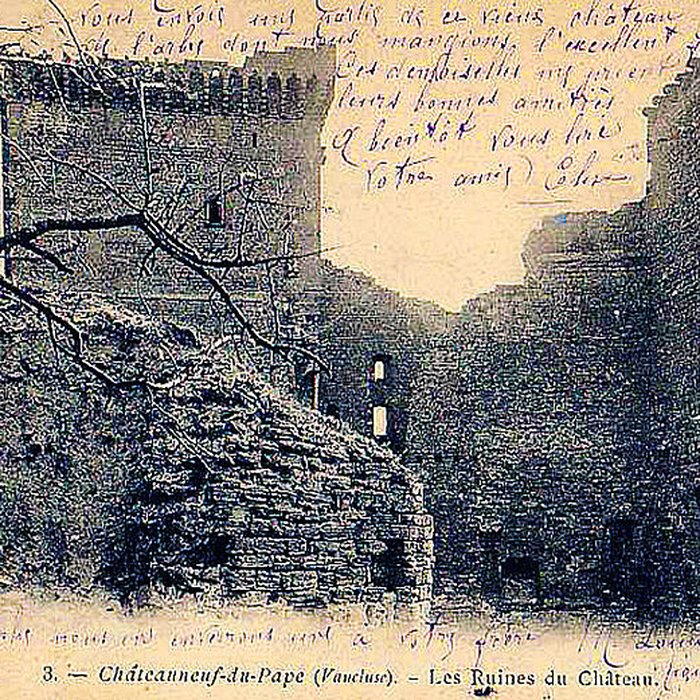 Vous envois une partie de ce vieux château
de l'arbe dont nous mangions l'excellent
Ces demoiselles me prient
leurs bonnes amitiès
A bientôt vous lire
Votre amie
nous en enverons une a votre frère
3. — Châteauneuf-du-Pape (Vaucluse). – Les Ruines du Château.